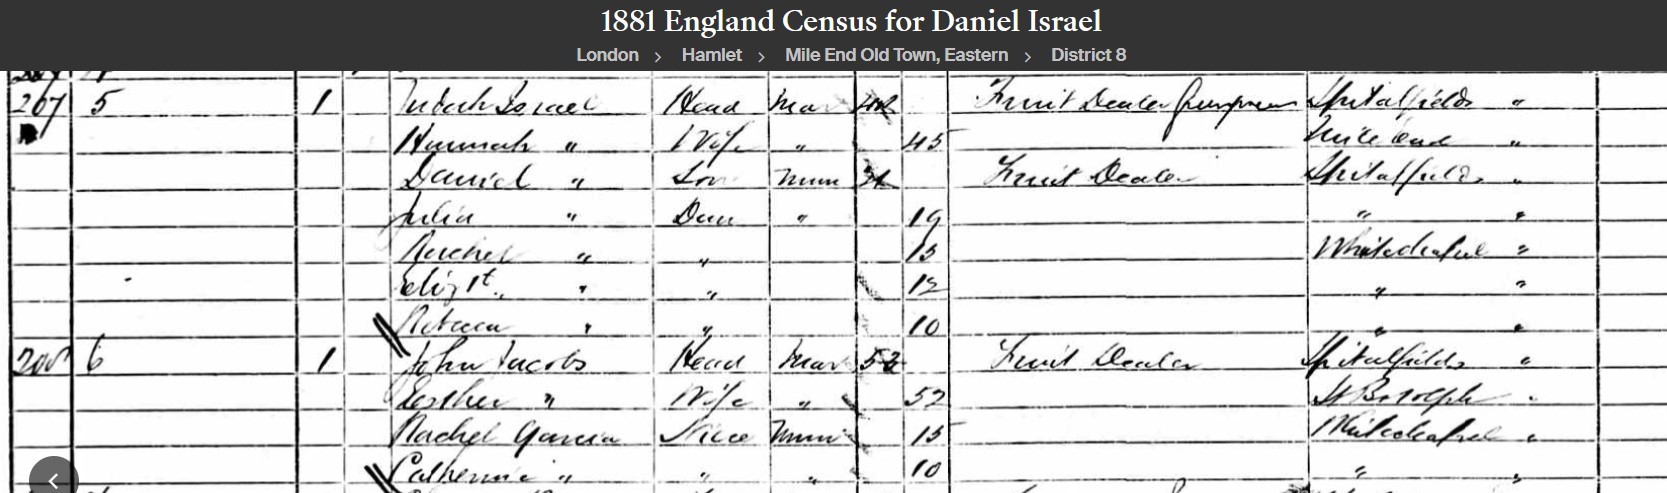 1881 England Census for Daniel Israel
London > Hamlet > Mile End Old Town, Eastern > District 8
267 5 1 Judah Israel Head Mar Fruit Dealer Spitalfields "
Hannah " Wife " 45 Mile End "
Daniel " Son Unm 21 Fruit Dealer Spitalfields "
Julia " Daur " 19 " "
Rachel " " 15 Whitechapel "
Elizth " " 12 " "
Rebecca " " 10 " "
6 1 John Jacobs Head Mar 52 Fruit Dealer Spitalfields "
Esther " Wife " 52 St Botolph "
Rachel Garcia Niece Unm 15 Whitechapel "
Catherine " " " 10 " "